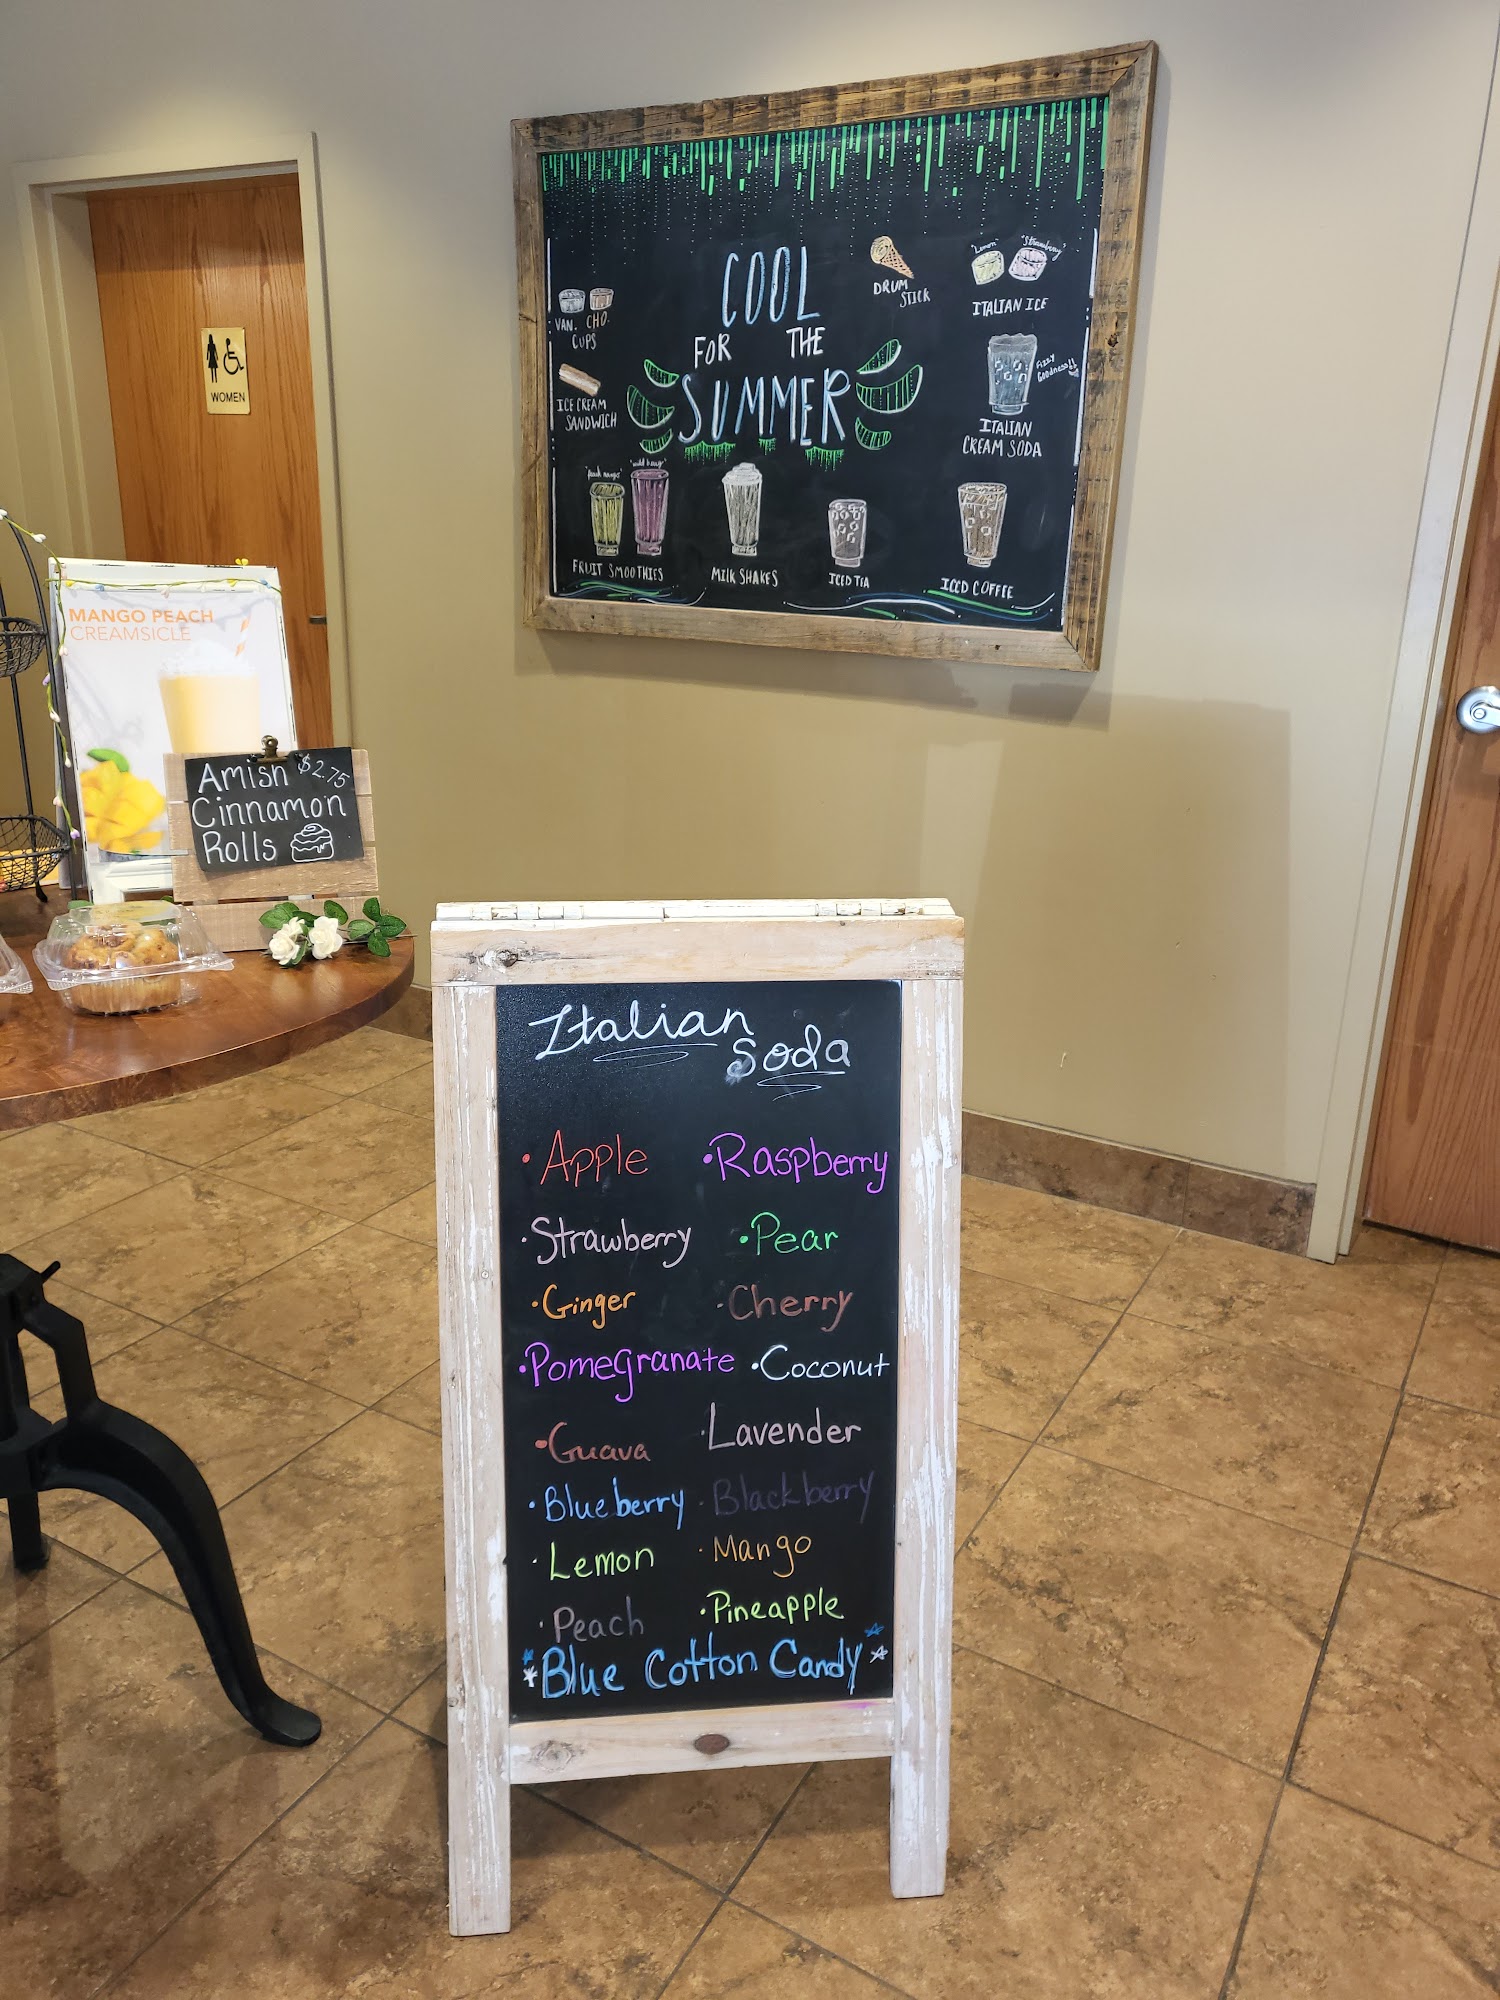 COOL
FOR THE
SUMMER
VAN. CHO.
CUPS
ICE CREAM
SANDWICH
DRUM
STICK
"Lemon" "Strawberry"
ITALIAN ICE
Fizzy
Goodness!!
ITALIAN
CREAM SODA
"peach mango"
FRUIT SMOOTHIES
MILK SHAKES
ICED TEA
ICED COFFEE
WOMEN
MANGO PEACH
CREAMSICLE
Amish $2.75
Cinnamon
Rolls
Italian
Soda
• Apple • Raspberry
• Strawberry • Pear
• Ginger • Cherry
• Pomegranate • Coconut
• Guava • Lavender
• Blueberry • Blackberry
• Lemon • Mango
• Peach • Pineapple
Blue Cotton Candy